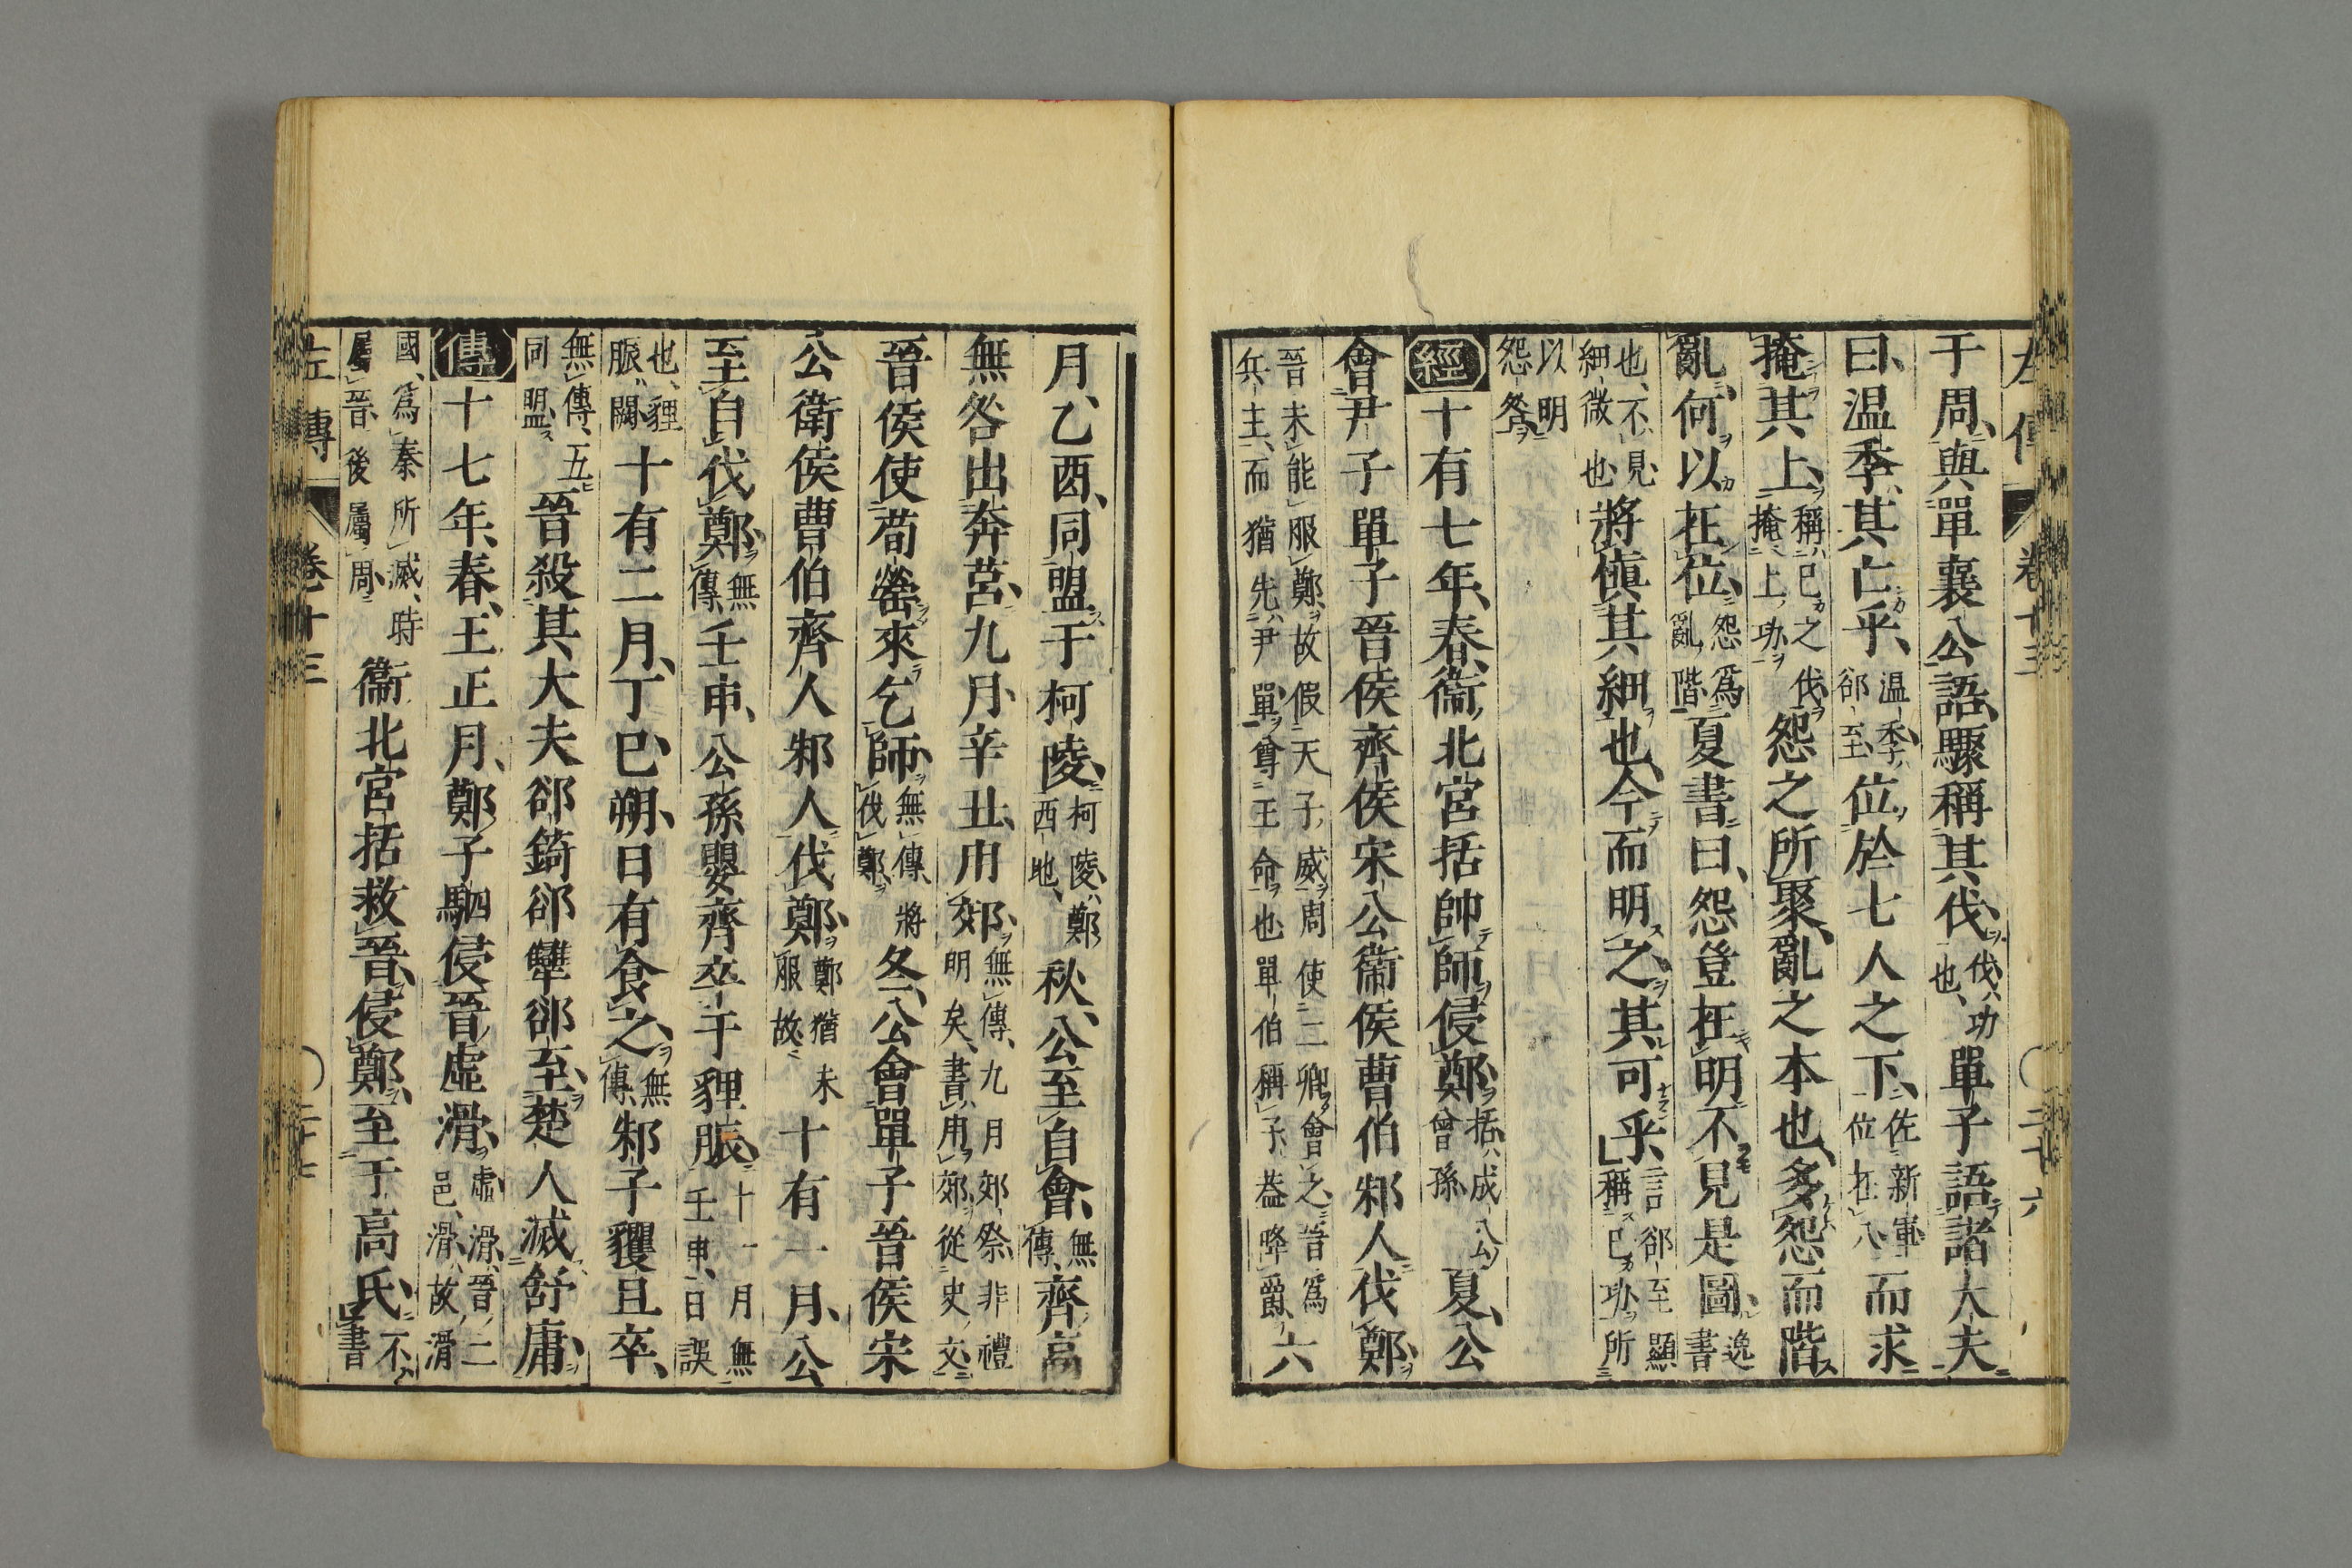 左傳 卷十三 二十六
于周與單襄公語驟稱其伐伐功也單子語諸大夫
曰温季其亡乎温季郤至位於七人之下佐新軍位在八而求
掩其上稱己之伐掩上功怨之所聚亂之本也多怨而階
亂何以在位怨爲亂階夏書曰怨豈在明不見是圖逸書
也不見細微也將愼其細也今而明之其可乎言郤至顯稱己功所
以明怨咎
經十有七年春衞北宮括帥師侵鄭括成公曾孫夏公
會尹子單子晉侯齊侯宋公衞侯曹伯邾人伐鄭
晉未能服鄭故假天子威周使二卿會之晉爲兵主而猶先尹單尊王命也單伯稱子葢降爵六
月乙酉同盟于柯陵柯陵鄭西地秋公至自會無傳齊高
無咎出奔莒九月辛丑用郊無傳九月郊祭非禮明矣書用郊從史文
晉侯使荀罃來乞師無傳將伐鄭冬公會單子晉侯宋
公衞侯曹伯齊人邾人伐鄭鄭猶未服故十有一月公
至自伐鄭無傳壬申公孫嬰齊卒于貍脤十一月無壬申日誤
也貍脤闕十有二月丁巳朔日有食之無傳邾子貜且卒
無傳五同盟晉殺其大夫郤錡郤犫郤至楚人滅舒庸
傳十七年春王正月鄭子駟侵晉虛滑虛滑晉二邑滑故滑
國爲秦所滅時屬晉後屬周衞北宮括救晉侵鄭至于高氏不書
左傳 卷十三